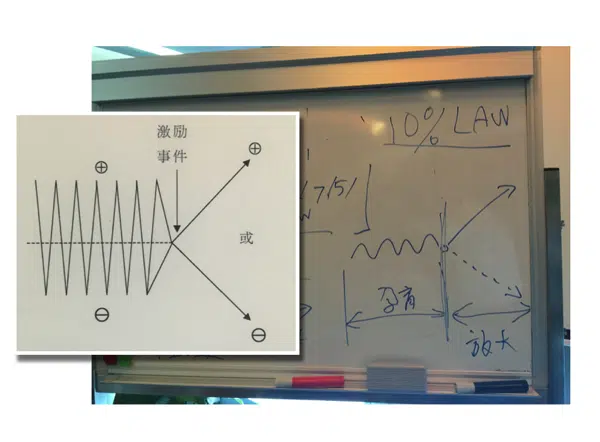 激励
事件
⊕
⊕
或
⊖
⊖
10% LAW
孕育
放大